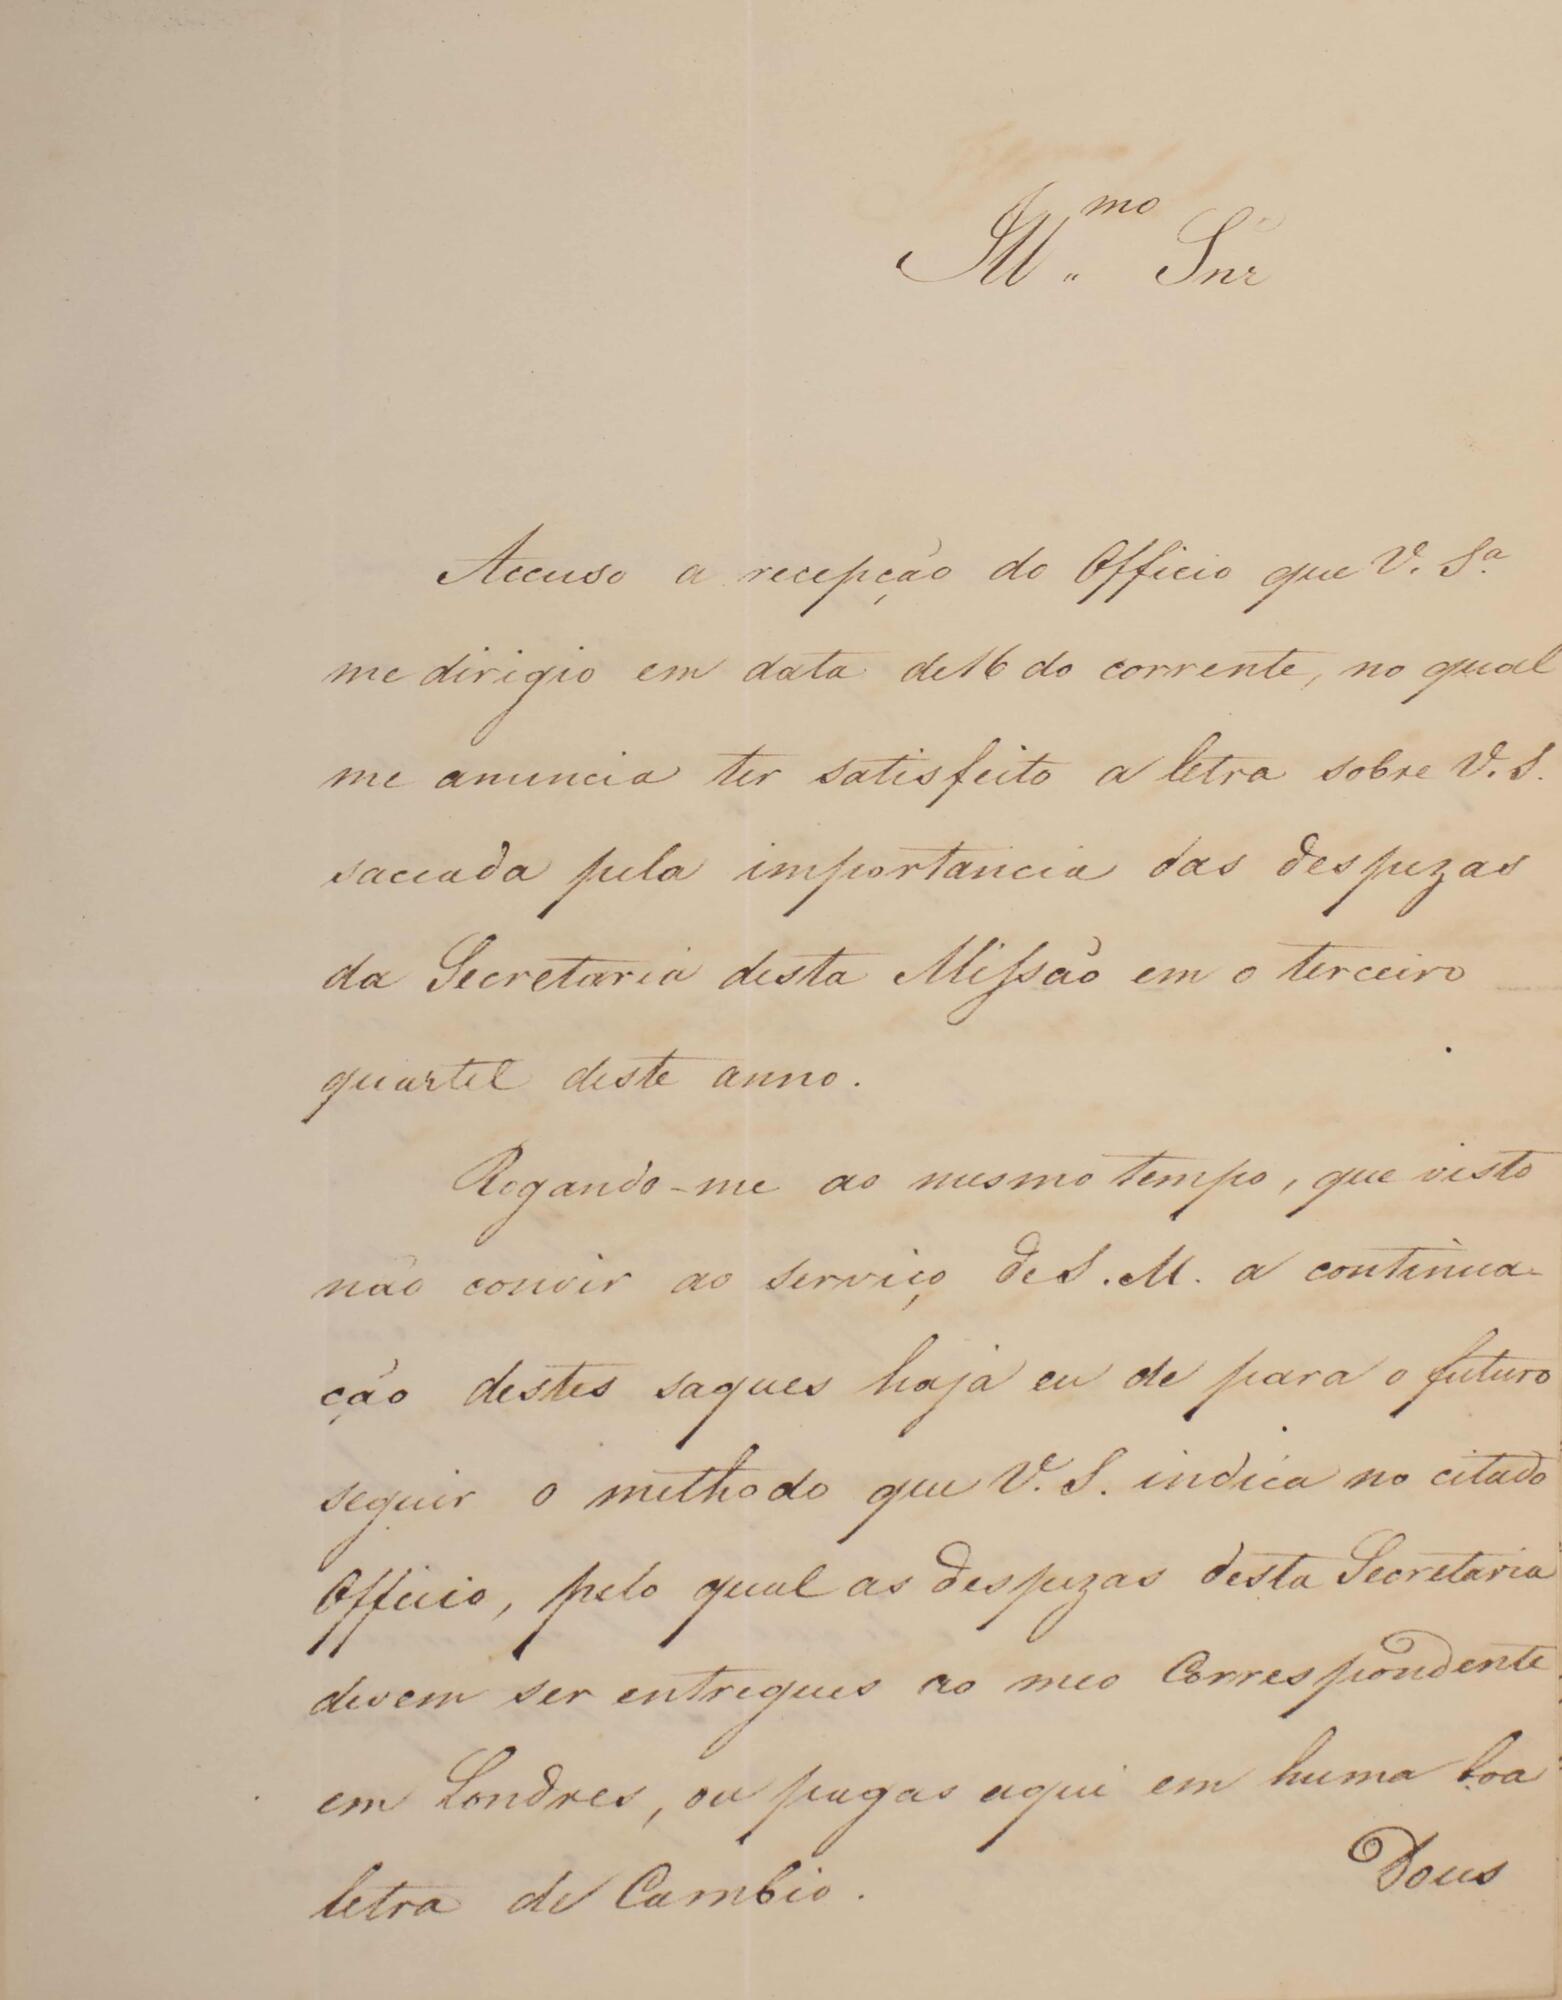 Ill.mo Snr
Accuso a recepção do Officio que V. Sa.
me dirigio em data de 16 do corrente, no qual
me anuncia ter satisfeito a letra sobre V. S.
saccada pela importancia das despezas
da Secretaria desta Missão em o terceiro
quartel deste anno.
Rogando-me ao mesmo tempo, que visto
não convir ao serviço de S. M. a continua-
ção destes saques haja eu de para o futuro
seguir o methodo que V. S. indica no citado
Officio, pelo qual as despezas desta Secretaria
devem ser entregues ao meo Correspondente
em Londres, ou pagas aqui em huma boa
letra de Cambio.
Dous